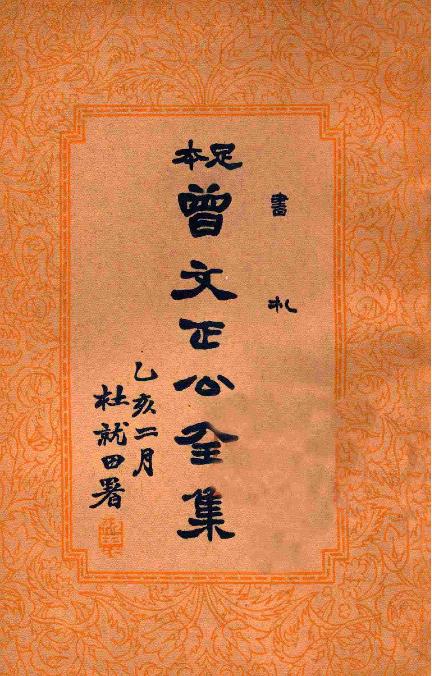 書札
足本
曾文正公全集
乙亥二月
杜就田署